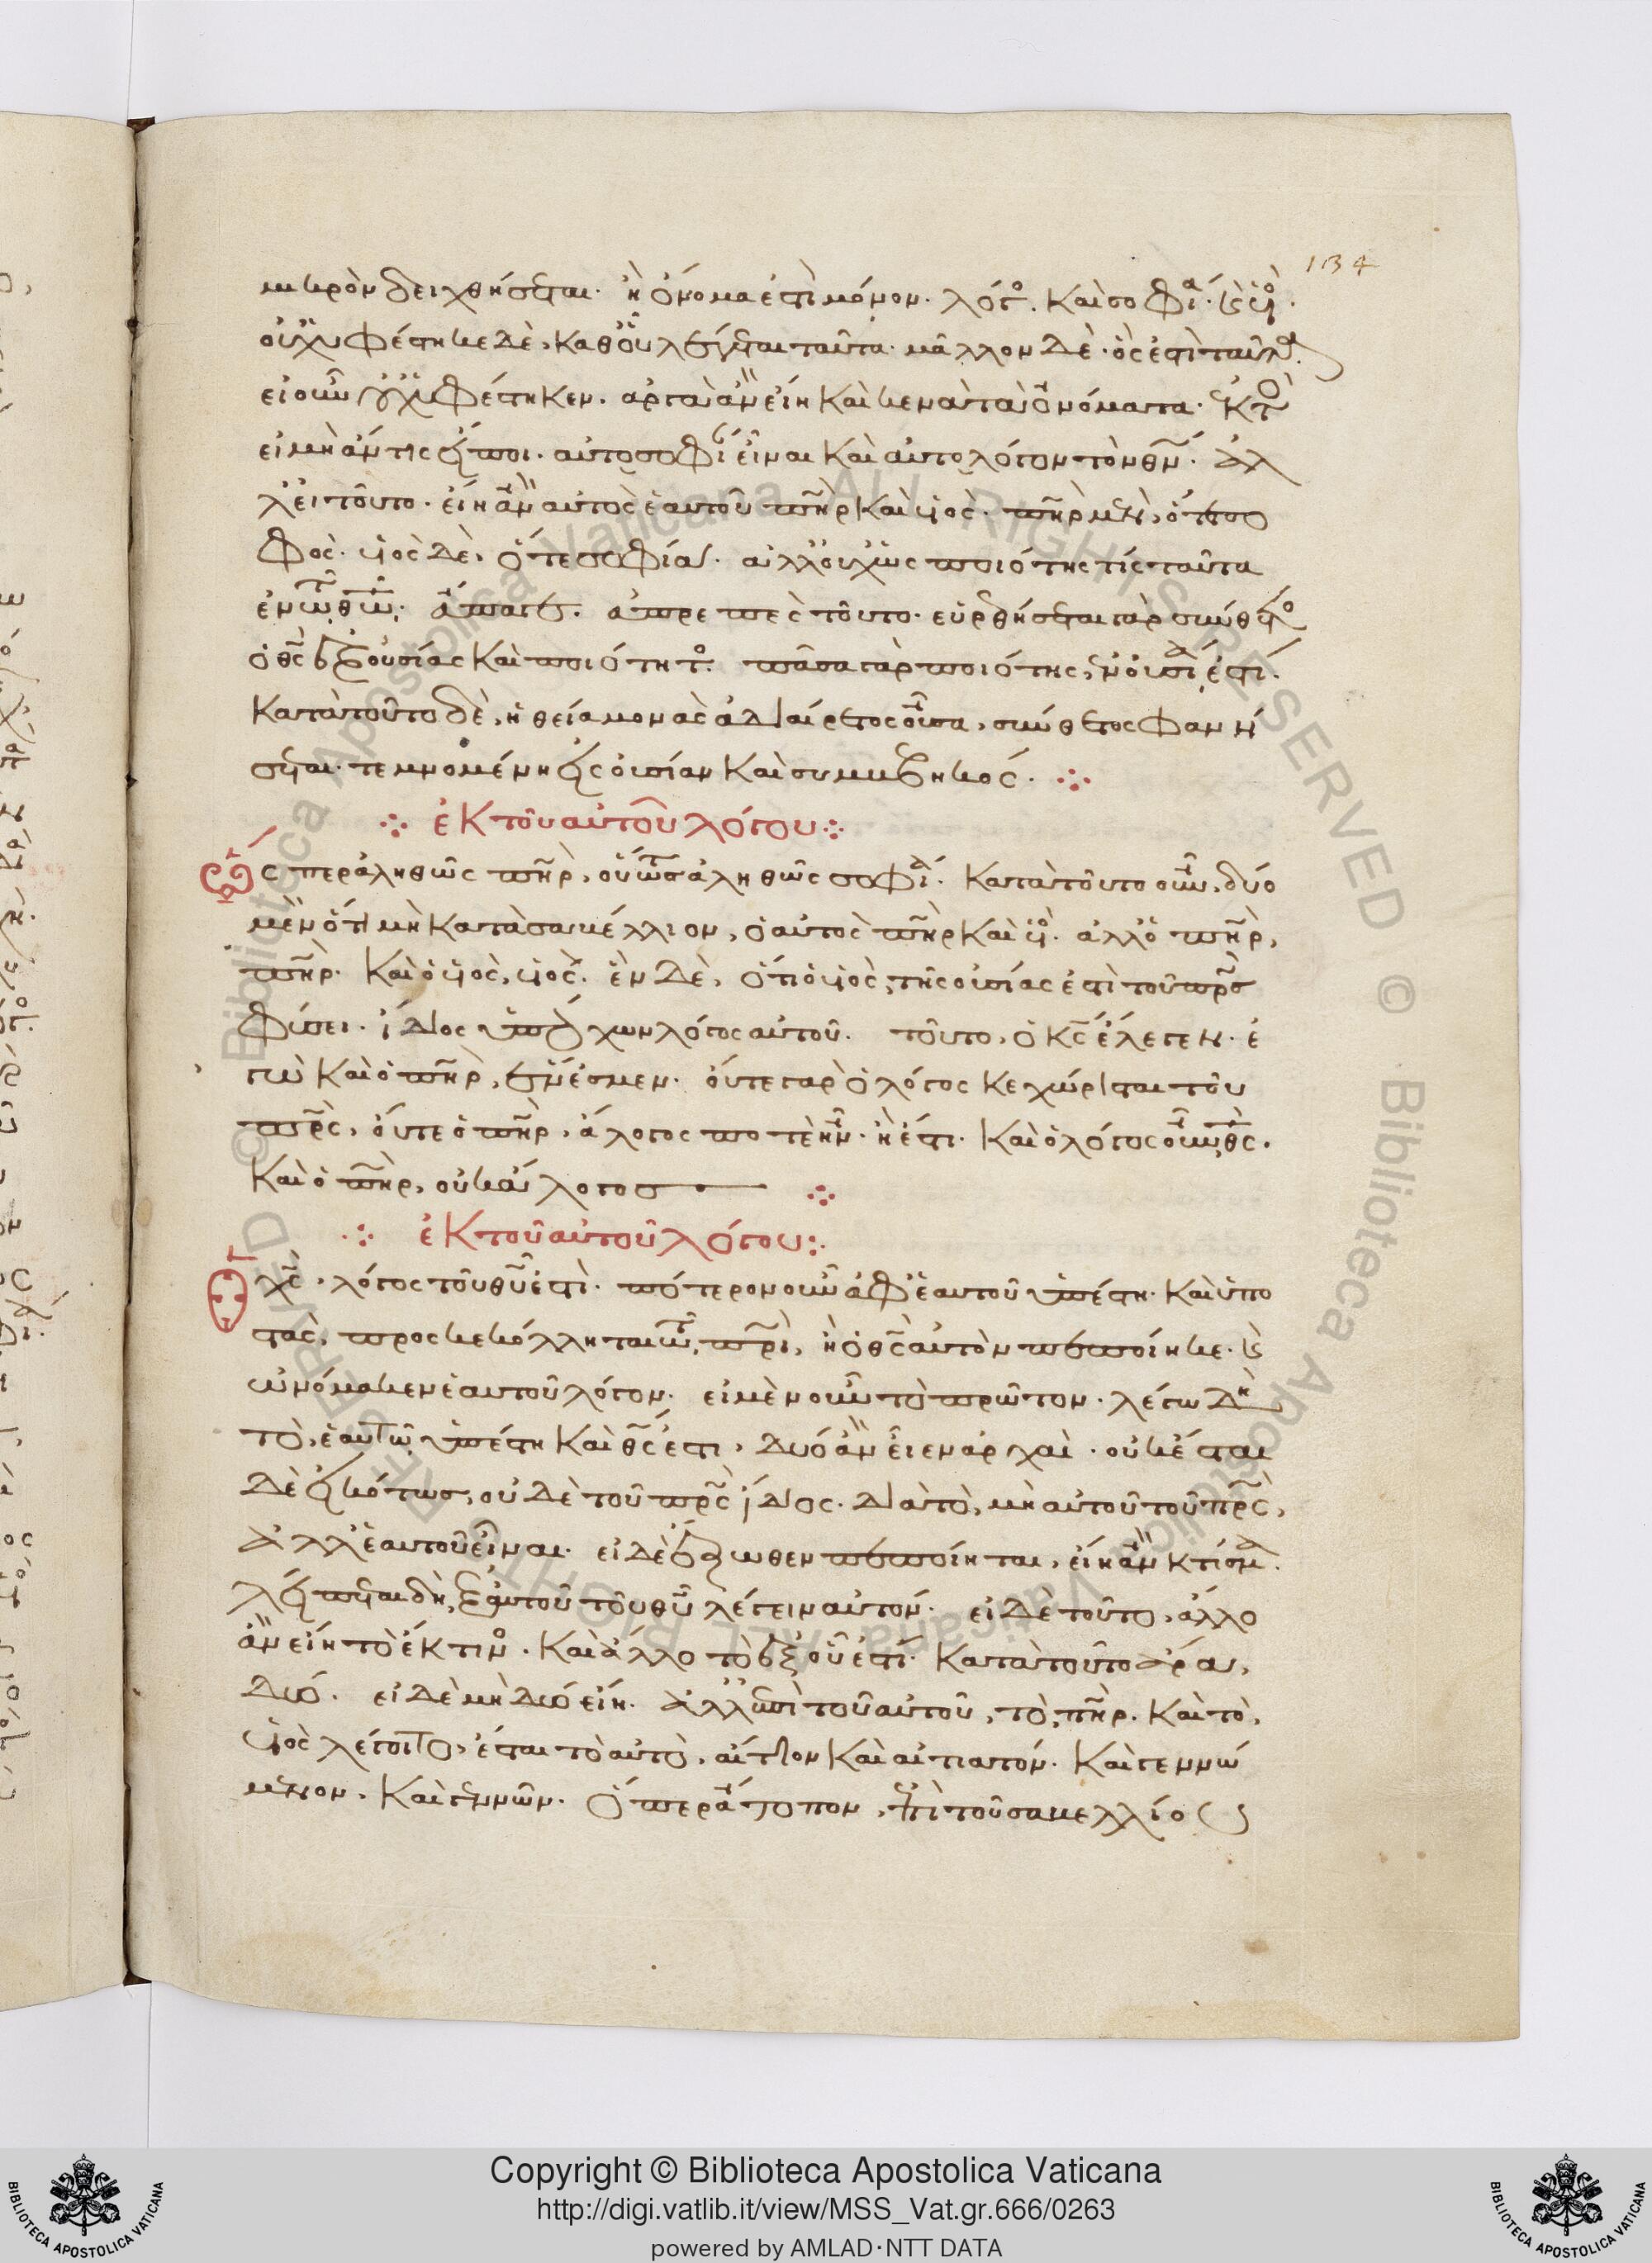 134
μικρὸν δειχθήσεται. ἢ ὄνομα ἐστὶ μόνον. λόγος. καὶ σοφία. καὶ υἱὸς.
οὐχ ὑφέστηκε δὲ, καθ' οὗ λέγεται ταῦτα. μᾶλλον δὲ. ὅς ἐστι ταῦτα.
εἰ οὖν οὐχ ὑφέστηκεν. ἀργὰ ἂν εἴη καὶ κενὰ τὰ ὀνόματα. ἐκτὸς
εἰ μὴ ἄν τις εἴποι. αὐτοσοφίαν εἶναι καὶ αὐτολόγον τὸν θν. ἀλ
λ' εἰ τοῦτο. εἴη ἂν αὐτὸς ἑαυτοῦ πηρ καὶ υἱὸς. πηρ μὲν, ὅτε σο
φὸς. υἱὸς δὲ, ὅτε σοφία. ἀλλ' οὐχ ὡς ποιότης τίς ταῦτα
ἐν τῷ θῶ. ἄπαγε. ἀπρεπὲς τοῦτο. εὑρεθήσεται γὰρ σύνθετος
ὁ θς ἐξ οὐσίας καὶ ποιότητος. πᾶσα γὰρ ποιότης, ἐν οὐσία ἐστί.
κατὰ τοῦτο δὲ, ἡ θεία μονὰς ἀδιαίρετος οὖσα, σύνθετος φανή
σεται. τεμνομένη εἰς οὐσίαν καὶ συμβεβηκός.
ἐκ τοῦ αὐτοῦ λόγου
Ὥσπερ ἀληθῶς πηρ, οὕτως ἀληθῶς σοφία. κατὰ τοῦτο οὖν, δύο
μὲν ὅτι μὴ κατὰ σαβέλλιον, ὁ αὐτὸς πηρ καὶ υἱὸς. ἀλλ' ὁ πηρ,
πηρ. καὶ ὁ υἱὸς, υἱὸς. ἓν δὲ, ὅτι ὁ υἱὸς, τῆς οὐσίας ἐστὶ τοῦ πρς
φύσει. ἴδιος ὑπάρχων λόγος αὐτοῦ. τοῦτο, ὁ κς ἔλεγεν. ἐ
γὼ καὶ ὁ πηρ, ἕν ἐσμεν. οὔτε γὰρ ὁ λόγος κεχώρισται τοῦ
πρς, οὔτε ὁ πηρ, ἄλογος ποτὲ ἦν. ἢ ἔστι. καὶ ὁ λόγος οὖν, θς.
καὶ ὁ πηρ, οὐκ ἄλογος
ἐκ τοῦ αὐτοῦ λόγου
Ὁ χς, λόγος τοῦ θυ ἐστὶ. πότερον οὖν ἀφ' ἑαυτοῦ ὑπέστη. καὶ ὑπο
στὰς, προσκεκόλληται τῷ πρὶ, ἢ ὁ θς αὐτὸν πεποίηκε. καὶ
ὠνόμακεν ἑαυτοῦ λόγον. εἰ μὲν οὖν τὸ πρῶτον. λέγω δὴ
τὸ, ἑαυτῷ ὑπέστη καὶ θς ἐστι, δύο ἂν εἶεν ἀρχαὶ. οὐκ ἔσται
δὲ εἰκότως, οὐδὲ τοῦ πρς ἴδιος. διὰ τὸ, μὴ αὐτοῦ τοῦ πρς,
ἀλλ' ἑαυτοῦ εἶναι. εἰ δὲ ἔξωθεν πεποίηται, εἴη ἂν κτίσμα.
λείπεται δὴ, ἐξ αὐτοῦ τοῦ θυ λέγειν αὐτόν. εἰ δὲ τοῦτο, ἄλλο
ἂν εἴη τὸ ἔκ τινος. καὶ ἄλλο τὸ ἐξ οὗ ἐστί. κατὰ τοῦτο ἄρα,
δύο. εἰ δὲ μὴ δύο εἴη. ἀλλ' ἐπὶ τοῦ αὐτοῦ, τὸ, πηρ. καὶ τὸ,
υἱὸς λέγοιτο, ἔσται τὸ αὐτὸ, αἴτιον καὶ αἰτιατόν. καὶ γεννώ
μενον, καὶ γεννῶν. ὅπερ ἄτοπον, ἐπὶ τοῦ σαβελλίου
Copyright © Biblioteca Apostolica Vaticana
http://digi.vatlib.it/view/MSS_Vat.gr.666/0263
powered by AMLAD·NTT DATA
BIBLIOTECA APOSTOLICA VATICANA
BIBLIOTECA APOSTOLICA VATICANA